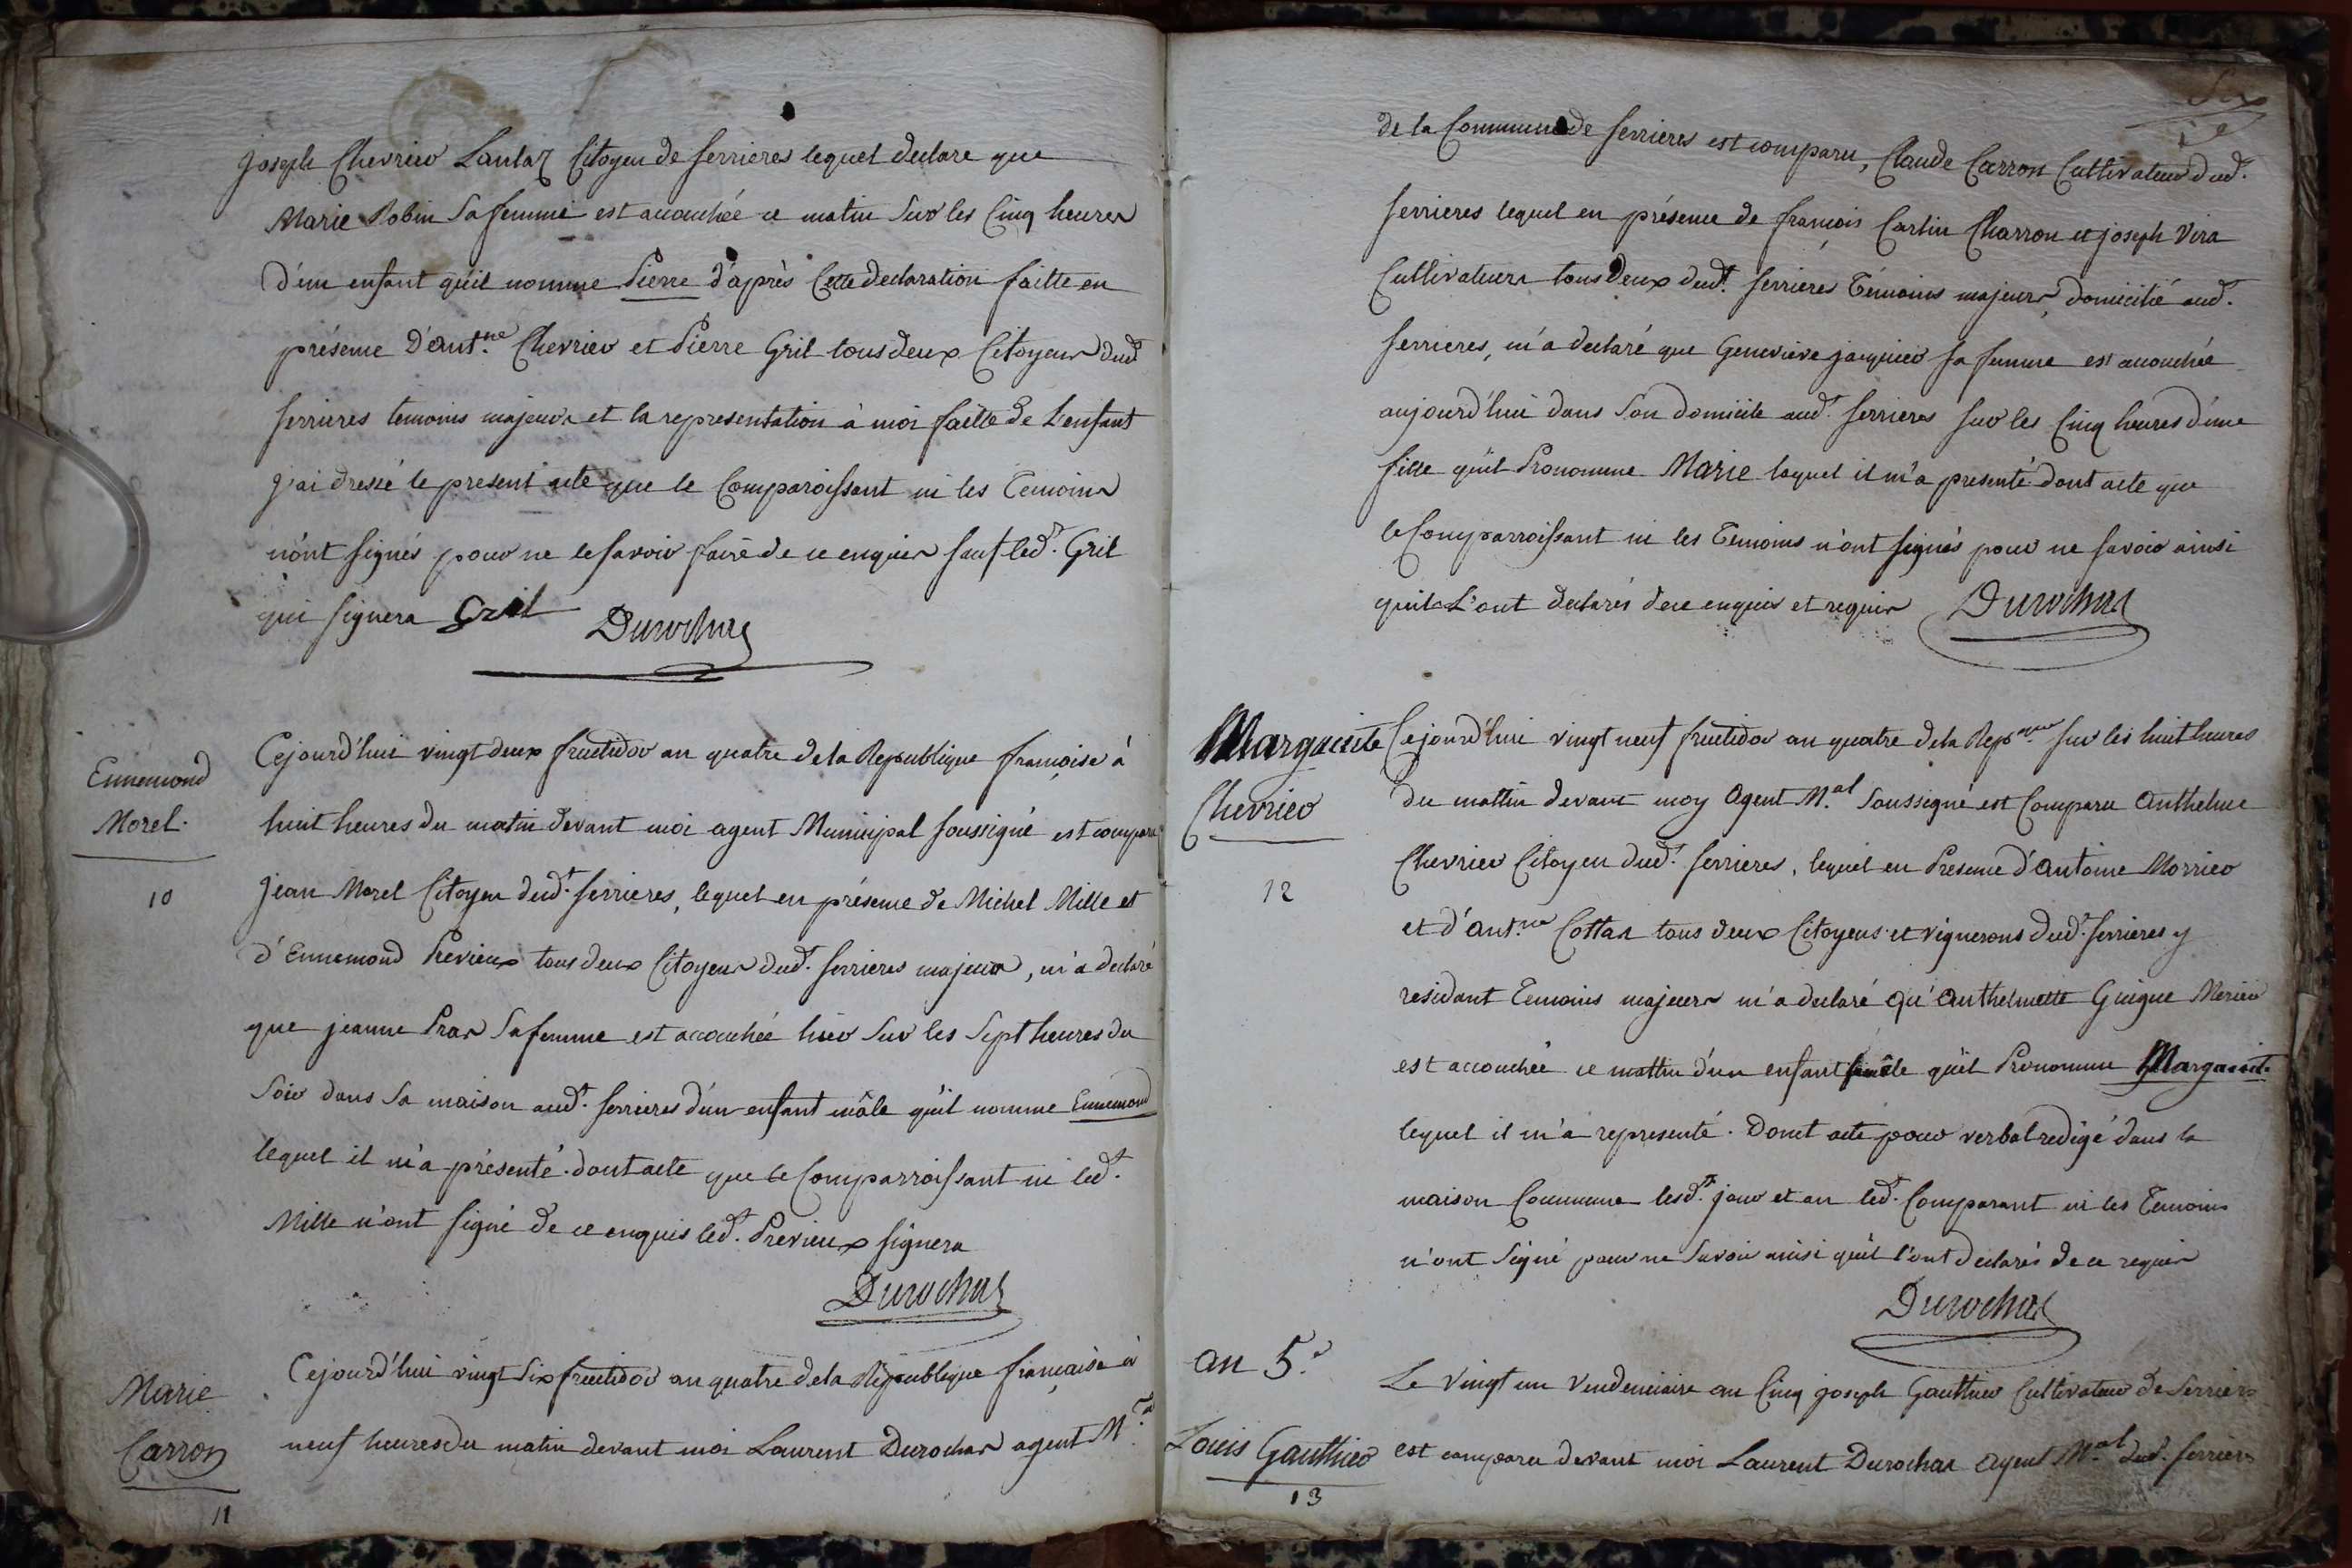 joseph Chevrier Lantaz Citoyen de serrieres lequel declare que
Marie Robin sa femme est accouchée ce matin sur les Cinq heures
d'un enfant qu'il nomme Pierre d'après Cette declaration faitte en
présence d'ant.ne Chevrier et Pierre Gril tous deux Citoyens dud.
serrieres temoins majeurs et la representation à moi faitte de L'enfant
j'ai dressé le present acte que le Comparoissant ni les Temoins
n'ont signés pour ne le savoir faire de ce enquis sauf led.t Gril
qui signera Gril
Durochas
Ennemond
Morel.
10
Cejourd'hui vingt deux fructidor an quatre de la Republique françoise à
huit heures du matin devant moi agent Municipal soussigné est comparu
jean Morel Citoyen dud.t serrieres, lequel en présence de Michel Mille et
d'Ennemond Previeux tous deux Citoyens dud.t serrieres majeurs, m'a declaré
que jeanne Pras sa femme est accouchée hier sur les sept heures du
soir dans sa maison aud.t serrieres d'un enfant mâle qu'il nomme Ennemond
lequel il m'a présenté. dont acte que le Comparroissant ni led.t
Mille n'ont signé de ce enquis led.t Previeux signera
Durochas
Marie
Carron
11
Cejourd'hui vingt six fructidor an quatre de la République française à
neuf heures du matin devant moi Laurent Durochas agent M.al
de la Commune de serrieres est comparu, Claude Carron Cultivateur dud.t
serrieres lequel en présence de françois Carlin Charron et joseph Vira
Cultivateurs tous Deux dud.t serrieres Témoins majeurs, domicilié aud.t
serrieres, m'a declaré que Geneviève jacquier sa femme est accouchée
aujourd'hui dans son domicile aud.t serrieres sur les Cinq heures d'une
fille qu'il Pronomme Marie laquel il m'a presenté dont acte que
le Comparroissant ni les Temoins n'ont signés pour ne savoir ainsi
quils L'ont declarés de ce enquis et requis Durochas
Margueritte
Chevrier
12
Cejourd'hui vingt neuf fructidor an quatre de la Rep.que sur les huit heures
du mattin devant moy Agent M.al soussigné est Comparu Anthelme
Chevrier Citoyen dud.t serrieres, lequel en Presence d'Antoine Morrier
et d'ant.ne Cottas tous deux Citoyens et vignerons dud.t serrieres y
residant Temoins majeurs m'a declaré qu'Anthelmette Guigue Merieu
est accouchée ce mattin d'un enfant femêle qu'il Pronomme Margueritte
lequel il m'a representé. Dont acte pour verbal redigé dans la
maison Commune lesd.ts jour et an led.t Comparant ni les Temoins
n'ont signé pour ne savoir ainsi qu'il l'ont declarés de ce requis
Durochas
an 5.e
Louis Gauthier
13
Le vingt un Vendemiaire an Cinq joseph Gauthier Cultivateur de serrieres
est comparu devant moi Laurent Durochas agent M.al dud.t serrieres